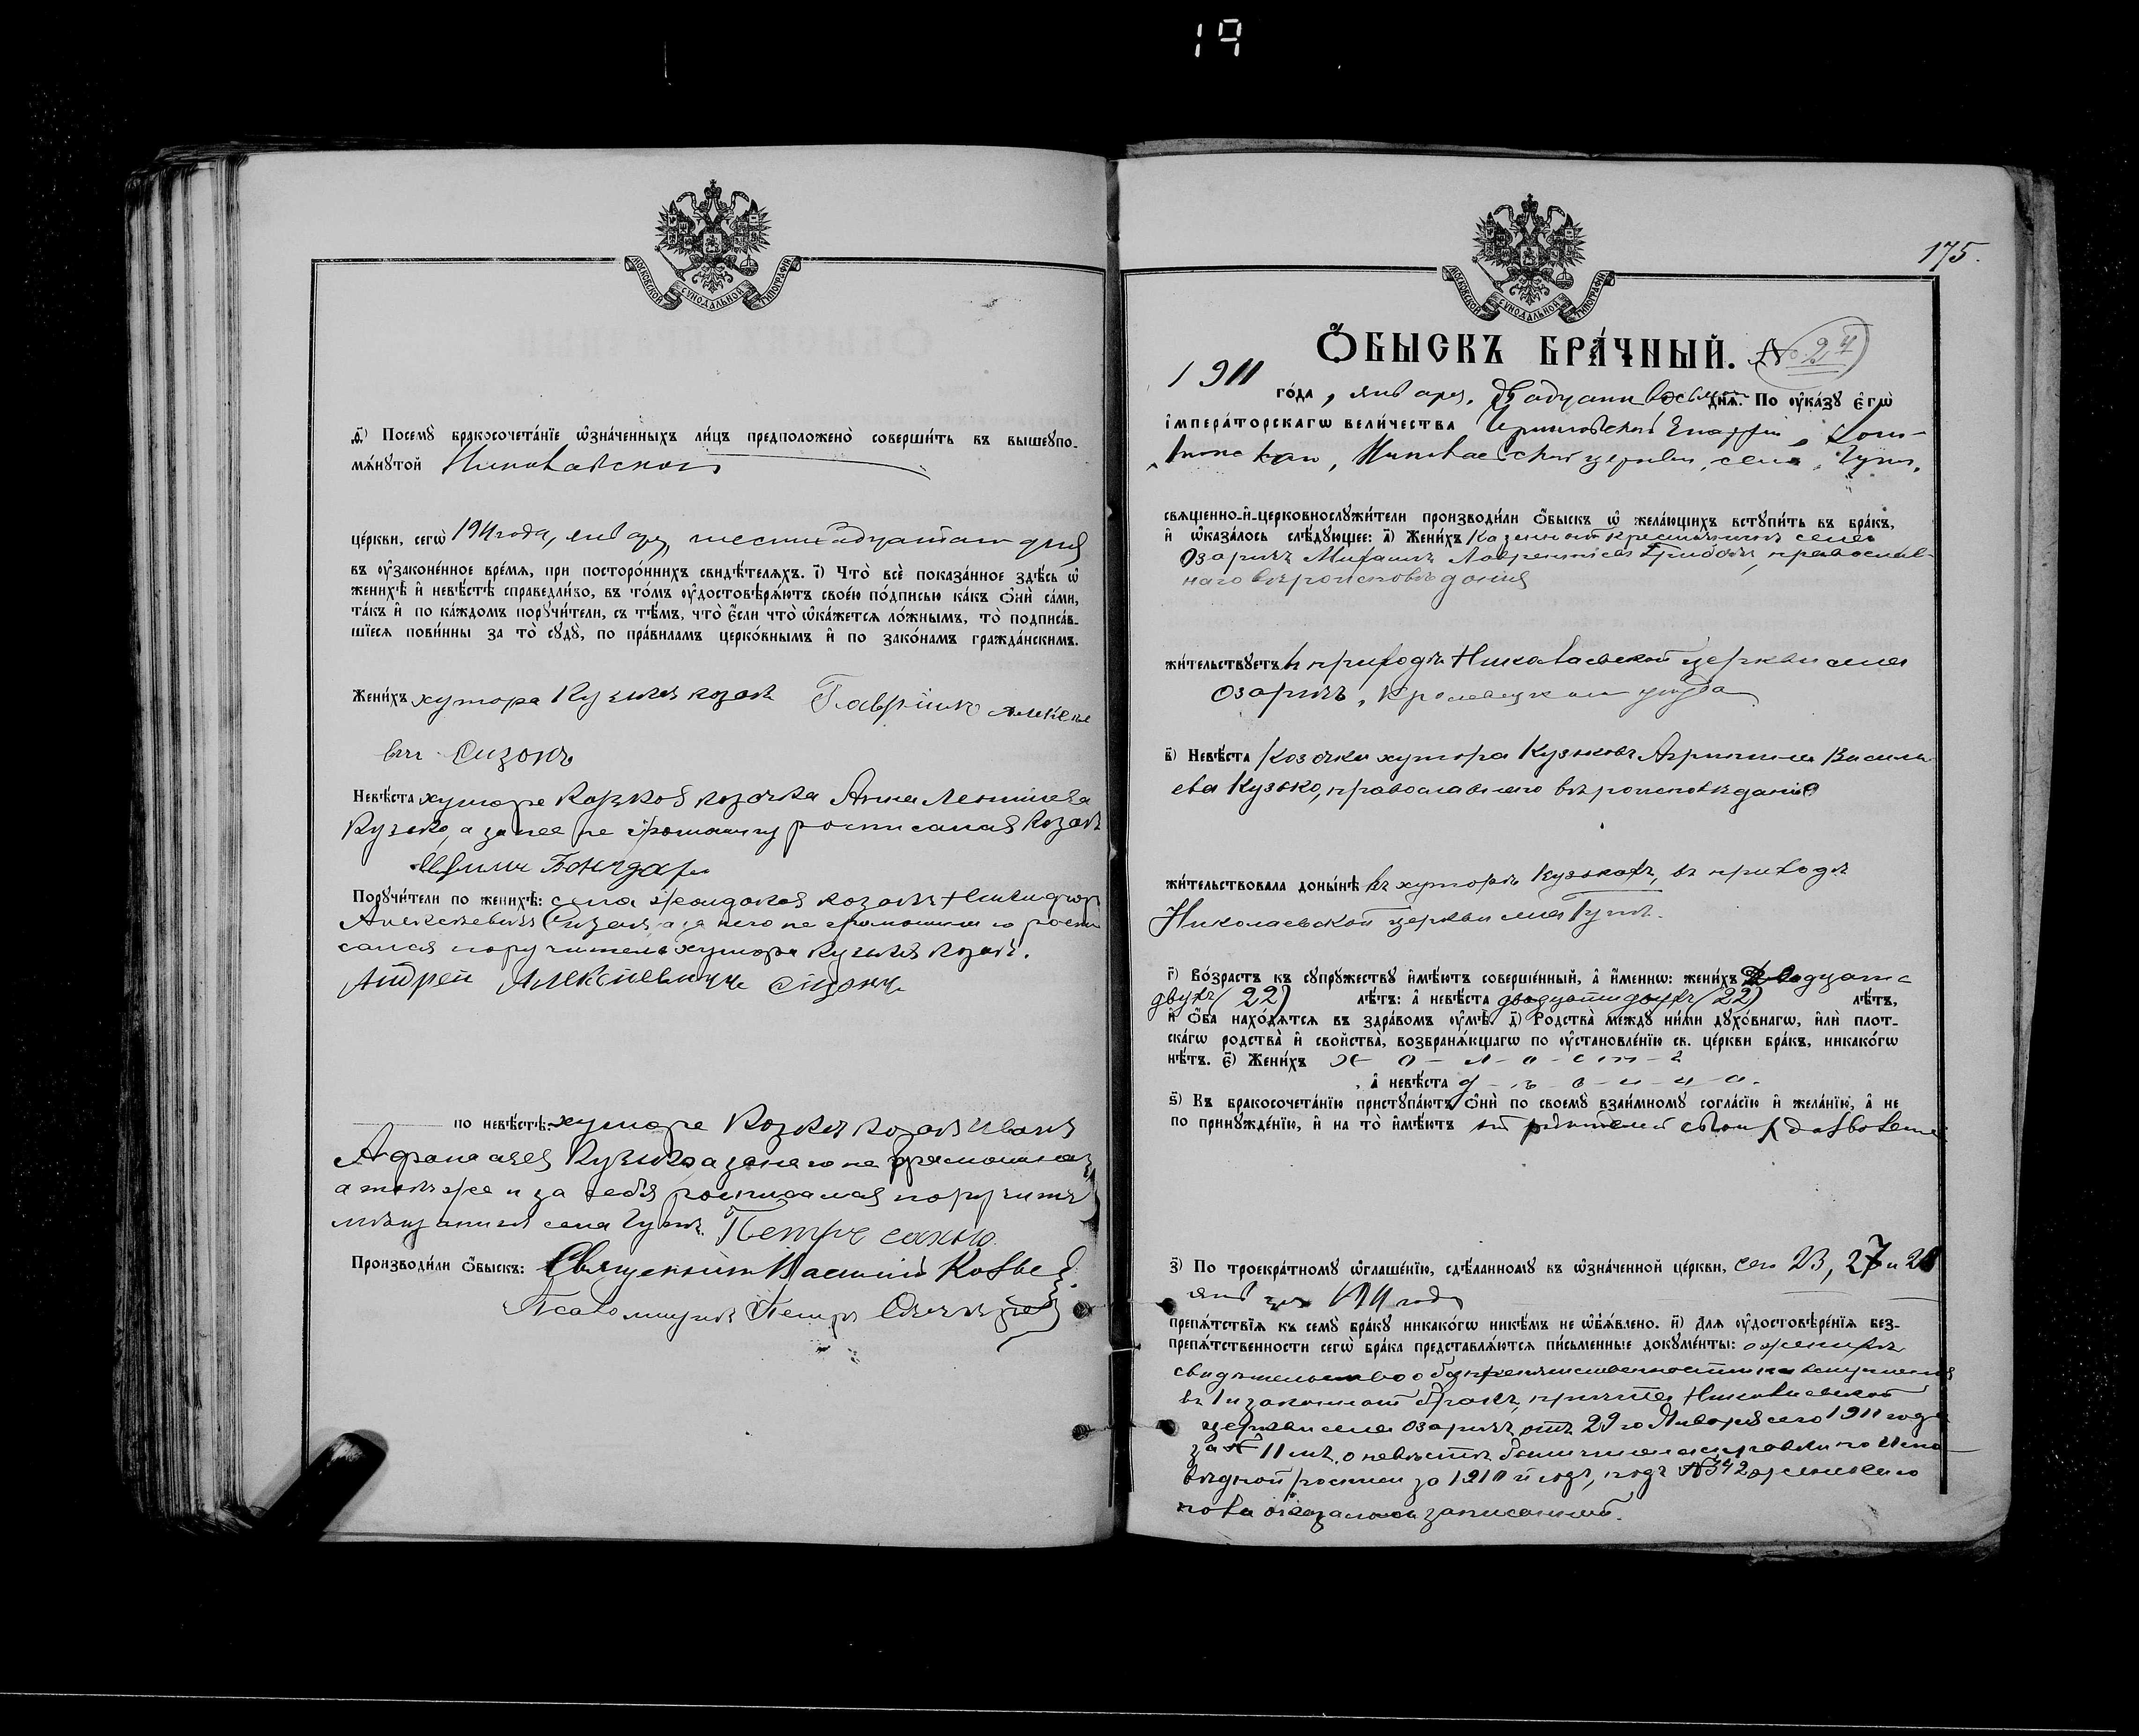 19
МОСКОВСКОЙ СУНОДАЛЬНОЙ ТИПОГРАФІИ
Посемꙋ̀ бракосочета́нїе ѡ҆зна́ченныхъ ли́цъ предположено̀ соверши́ть въ вышеꙋпо-
мѧ́нꙋтой Николаевской
це́ркви, сегѡ̀ 1911 года, января, шестнадцатаго дня
въ ᲂу҆зако́ненное вре́мѧ, при посторо́ннихъ свидѣ́телѧхъ. і҃) Что̀ всѐ пока́занное здѣ́сь ѡ҆
женихѣ̀ и҆ невѣ́стѣ справедли́во, въ то́мъ ᲂу҆достовѣрѧ́ютъ свое́ю по́дписью ка́къ ѻ҆нѝ са́ми,
та́къ и҆ по ка́ждомъ порꙋчи́тели, съ тѣ́мъ, что̀ є҆́сли что̀ ѡ҆ка́жетсѧ ло́жнымъ, то̀ подписа́в-
шїесѧ пови́нны за то̀ сꙋдꙋ̀, по пра́виламъ церко́внымъ и҆ по зако́намъ гражда́нскимъ.
Жени́хъ хутора Кузьковъ козакъ Гавріилъ Алексѣе
вич Сизонъ
Невѣ́ста хутора Кузьковъ козачка Анна
Кузько, а за нее не грамотну росписался козакъ
Бондарь
Порꙋчи́тели по женихѣ̀: села козакъ
Алексѣевичъ Сизонъ, а за него не грамотного роспи
сался поручитель хутора Кузьковъ козакъ.
Андрей Алексѣевичъ Сизонъ
по невѣ́стѣ: хутора Кузьковъ козакъ Иванъ
Кузько, а за него не грамотнаго
а также и за себя росписался поручитель
мѣщанинъ села Гут Петръ
Производи́ли ѻ҆́быскъ: Священникъ Василий
Псаломщикъ Петръ
МОСКОВСКОЙ СУНОДАЛЬНОЙ ТИПОГРАФІИ
175.
Ѻ҆́БЫСКЪ БРА́ЧНЫЙ. № 24
1911 го́да, января, Двадцать восьмого днѧ̀. По ᲂу҆ка́зꙋ є҆гѡ̀
і҆мпера́торскагѡ вели́чества Черниговской Епархіи, Коно-
Николаевской церкви, села
свѧще́нно-и҆-церковнослꙋжи́тели производи́ли ѻ҆́быскъ ѡ҆ жела́ющихъ встꙋпи́ть въ бра́къ,
и҆ ѡ҆каза́лось слѣ́дꙋющее: а҃) Жени́хъ Казенный крестьянинъ села
Озаричъ Михаилъ Лаврентіевъ Грибъ, православ-
наго вѣроисповѣданія
жи́тельствꙋетъ въ приходѣ Николаевской церкви села
Озаричъ, Кролевецкаго уѣзда
в҃) Невѣ́ста Козачка хутора Кузьковъ Агрипина Василь
ева Кузько, православнаго вѣроисповѣданія
жи́тельствовала доны́нѣ въ хуторѣ Кузькахъ, въ приходѣ
Николаевской церкви села
г҃) Во́зрастъ къ сꙋпрꙋ́жествꙋ и҆мѣ́ютъ соверше́нный, а҆ и҆́меннѡ: жени́хъ Двадцати
двухъ (22) лѣ́тъ: а҆ невѣ́ста двадцати двухъ (22) лѣ́тъ,
и҆ ѻ҆́ба нахо́дѧтсѧ въ здра́вомъ ᲂу҆мѣ̀. д҃) Родства̀ междꙋ ни́ми дꙋхо́внагѡ, и҆лѝ плот-
ска́гѡ родства̀ и҆ сво́йства, возбранѧ́ющагѡ по ᲂу҆становле́нїю св. це́ркви бра́къ, никако́гѡ
нѣ́тъ. є҃) Жени́хъ х - о - л - о - с - т - ъ
а҆ невѣ́ста д - ѣ - в - и - ц - а.
ѕ҃) Къ бракосочета́нїю пристꙋпа́ютъ ѻ҆нѝ по своемꙋ̀ взаи́мномꙋ согла́сїю и҆ жела́нїю, а҆ не
по принꙋжде́нїю, и҆ на то̀ и҆мѣ́ютъ отъ родителей своихъ дозволеніе
з҃) По троекра́тномꙋ ѡ҆глаше́нїю, сдѣ́ланномꙋ въ ѡ҆зна́ченной це́ркви, сего 23, 27 и 28
января 1911 года
препѧ́тствїѧ къ семꙋ̀ бра́кꙋ никако́гѡ никѣ́мъ не ѡ҆б̾ѧ́влено. и҃) Длѧ ᲂу҆достовѣре́нїѧ без-
препѧ́тственности сегѡ̀ бра́ка представлѧ́ютсѧ пи́сьменные докꙋме́нты: о женихѣ
свидѣтельство о безпрепятственности къ вступленію
въ 1й законный бракъ, причта Николаевской
церкви села Озаричъ отъ 29го Января сего 1911 года
за № 11мъ, о невѣстѣ по испо-
вѣдной росписи за 1910й годъ, подъ № 342
оказалась записанной.